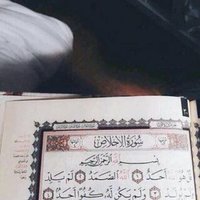 سُورَةُ الإِخْلَاصِ
بِسْمِ اللَّهِ الرَّحْمَٰنِ الرَّحِيمِ
أَحَدٌ ١ اللَّهُ الصَّمَدُ ٢ لَمْ يَلِدْ
وَلَمْ يَكُن لَّهُ كُفُوًا أَحَدٌ ٤